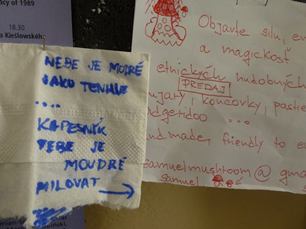 acy of 1989
18.30
a Kieślowského
NEBE JE MODRÉ
JAKO TENHLE
....
KAPESNÍK
TEBE JE
MOUDRÉ
MILOVAT →
Objavte silu, en
a magickosť
etnických hudobných
PREDAJ
koncovky, pastie
dgeridoo ...
nd made, friendly to e
samuelmushroom@gma
Samuel